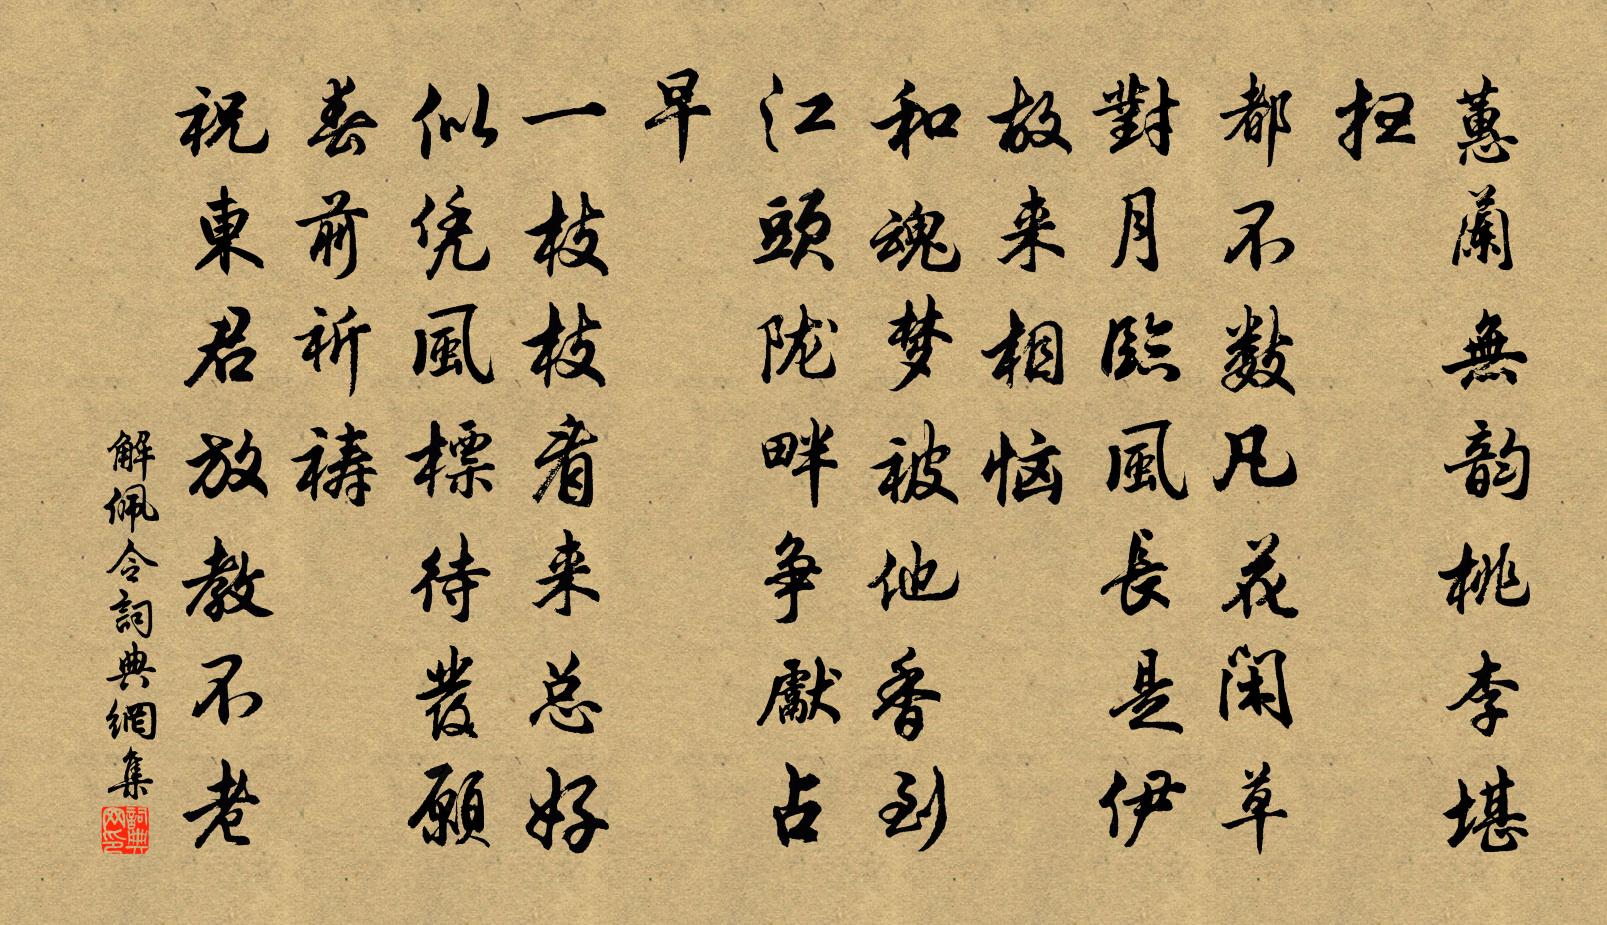 蕙蘭無韵桃李堪
扭
都不數凡花閑草
對月臨風長是伊
故来相恼
和魂梦被他香到
江頭陇畔争獻占
早
一枝枝看来总好
似凭風標待發願
春前祈禱
祝東君放教不老
解佩令詞典網集
詞典网印